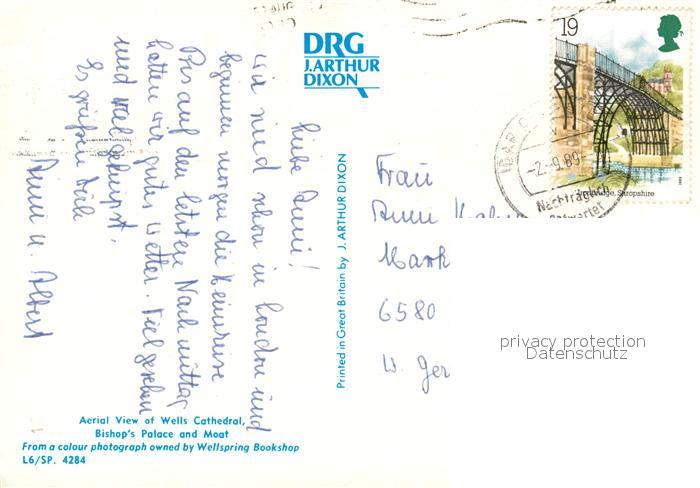 DRG
J. ARTHUR
DIXON
Liebe Anni!
Wir sind schon in London und
beginnen morgen die Heimreise
Bis auf den letzten Nachmittag
hatten wir gutes Wetter. Viel gesehen
und viel
Es grüßen Dich
Anni u. Albert
Printed in Great Britain by J. ARTHUR DIXON
19
Ironbridge, Shropshire
IDAR
-2.-9.89-
Nachträglich
entwertet
Frau
Anni
Mark
6580
W. Ger
privacy protection
Datenschutz
Aerial View of Wells Cathedral,
Bishop's Palace and Moat
From a colour photograph owned by Wellspring Bookshop
L6/SP. 4284